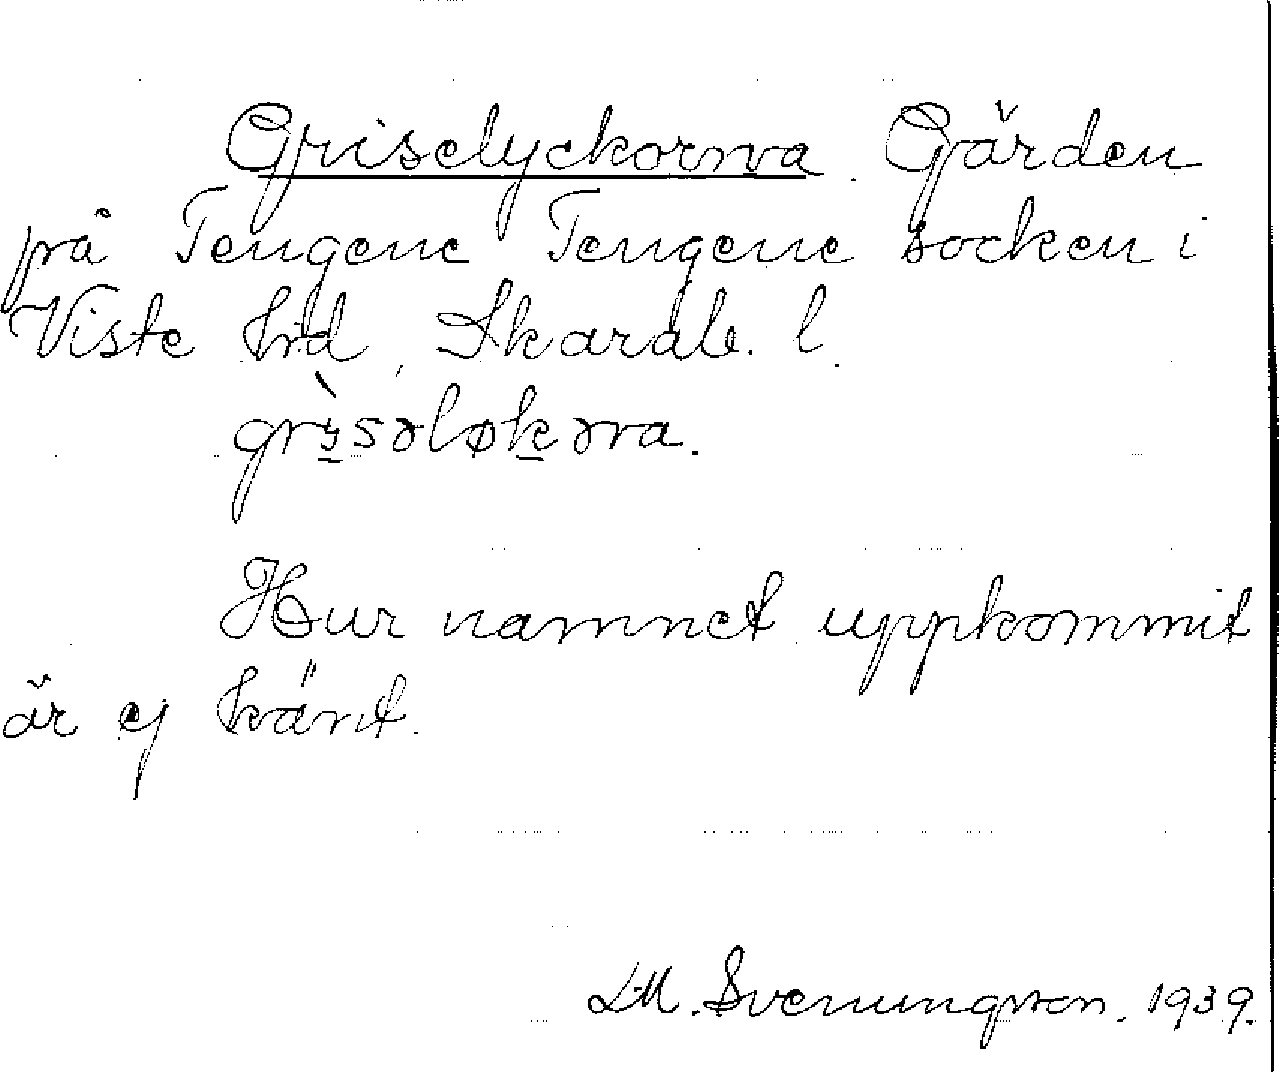 Griselyckorna. Gärden
på Tengene Tengene socken i
Viste hrd, Skarab. l.
Hur namnet uppkommit
är ej känt.
L.M. Svenungson. 1939.